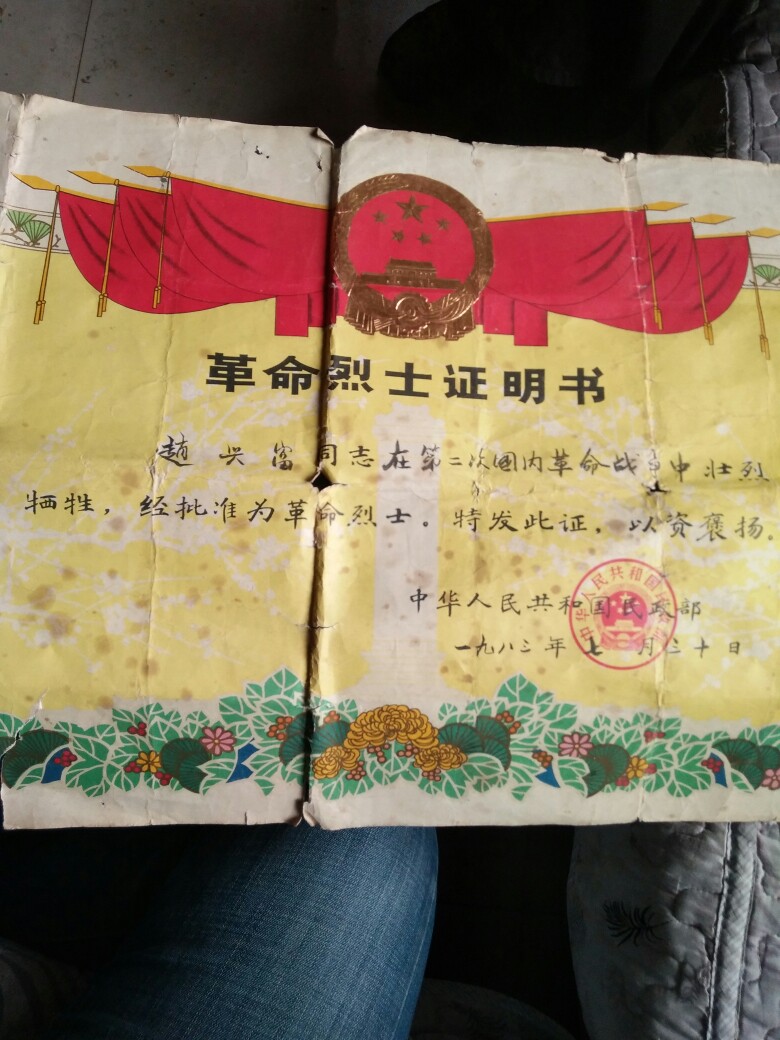 革命烈士证明书
赵兴富同志在第二次国内革命战争中壮烈
牺牲，经批准为革命烈士。特发此证，以资褒扬。
中华人民共和国民政部
一九八三年七月三十日
中华人民共和国民政部